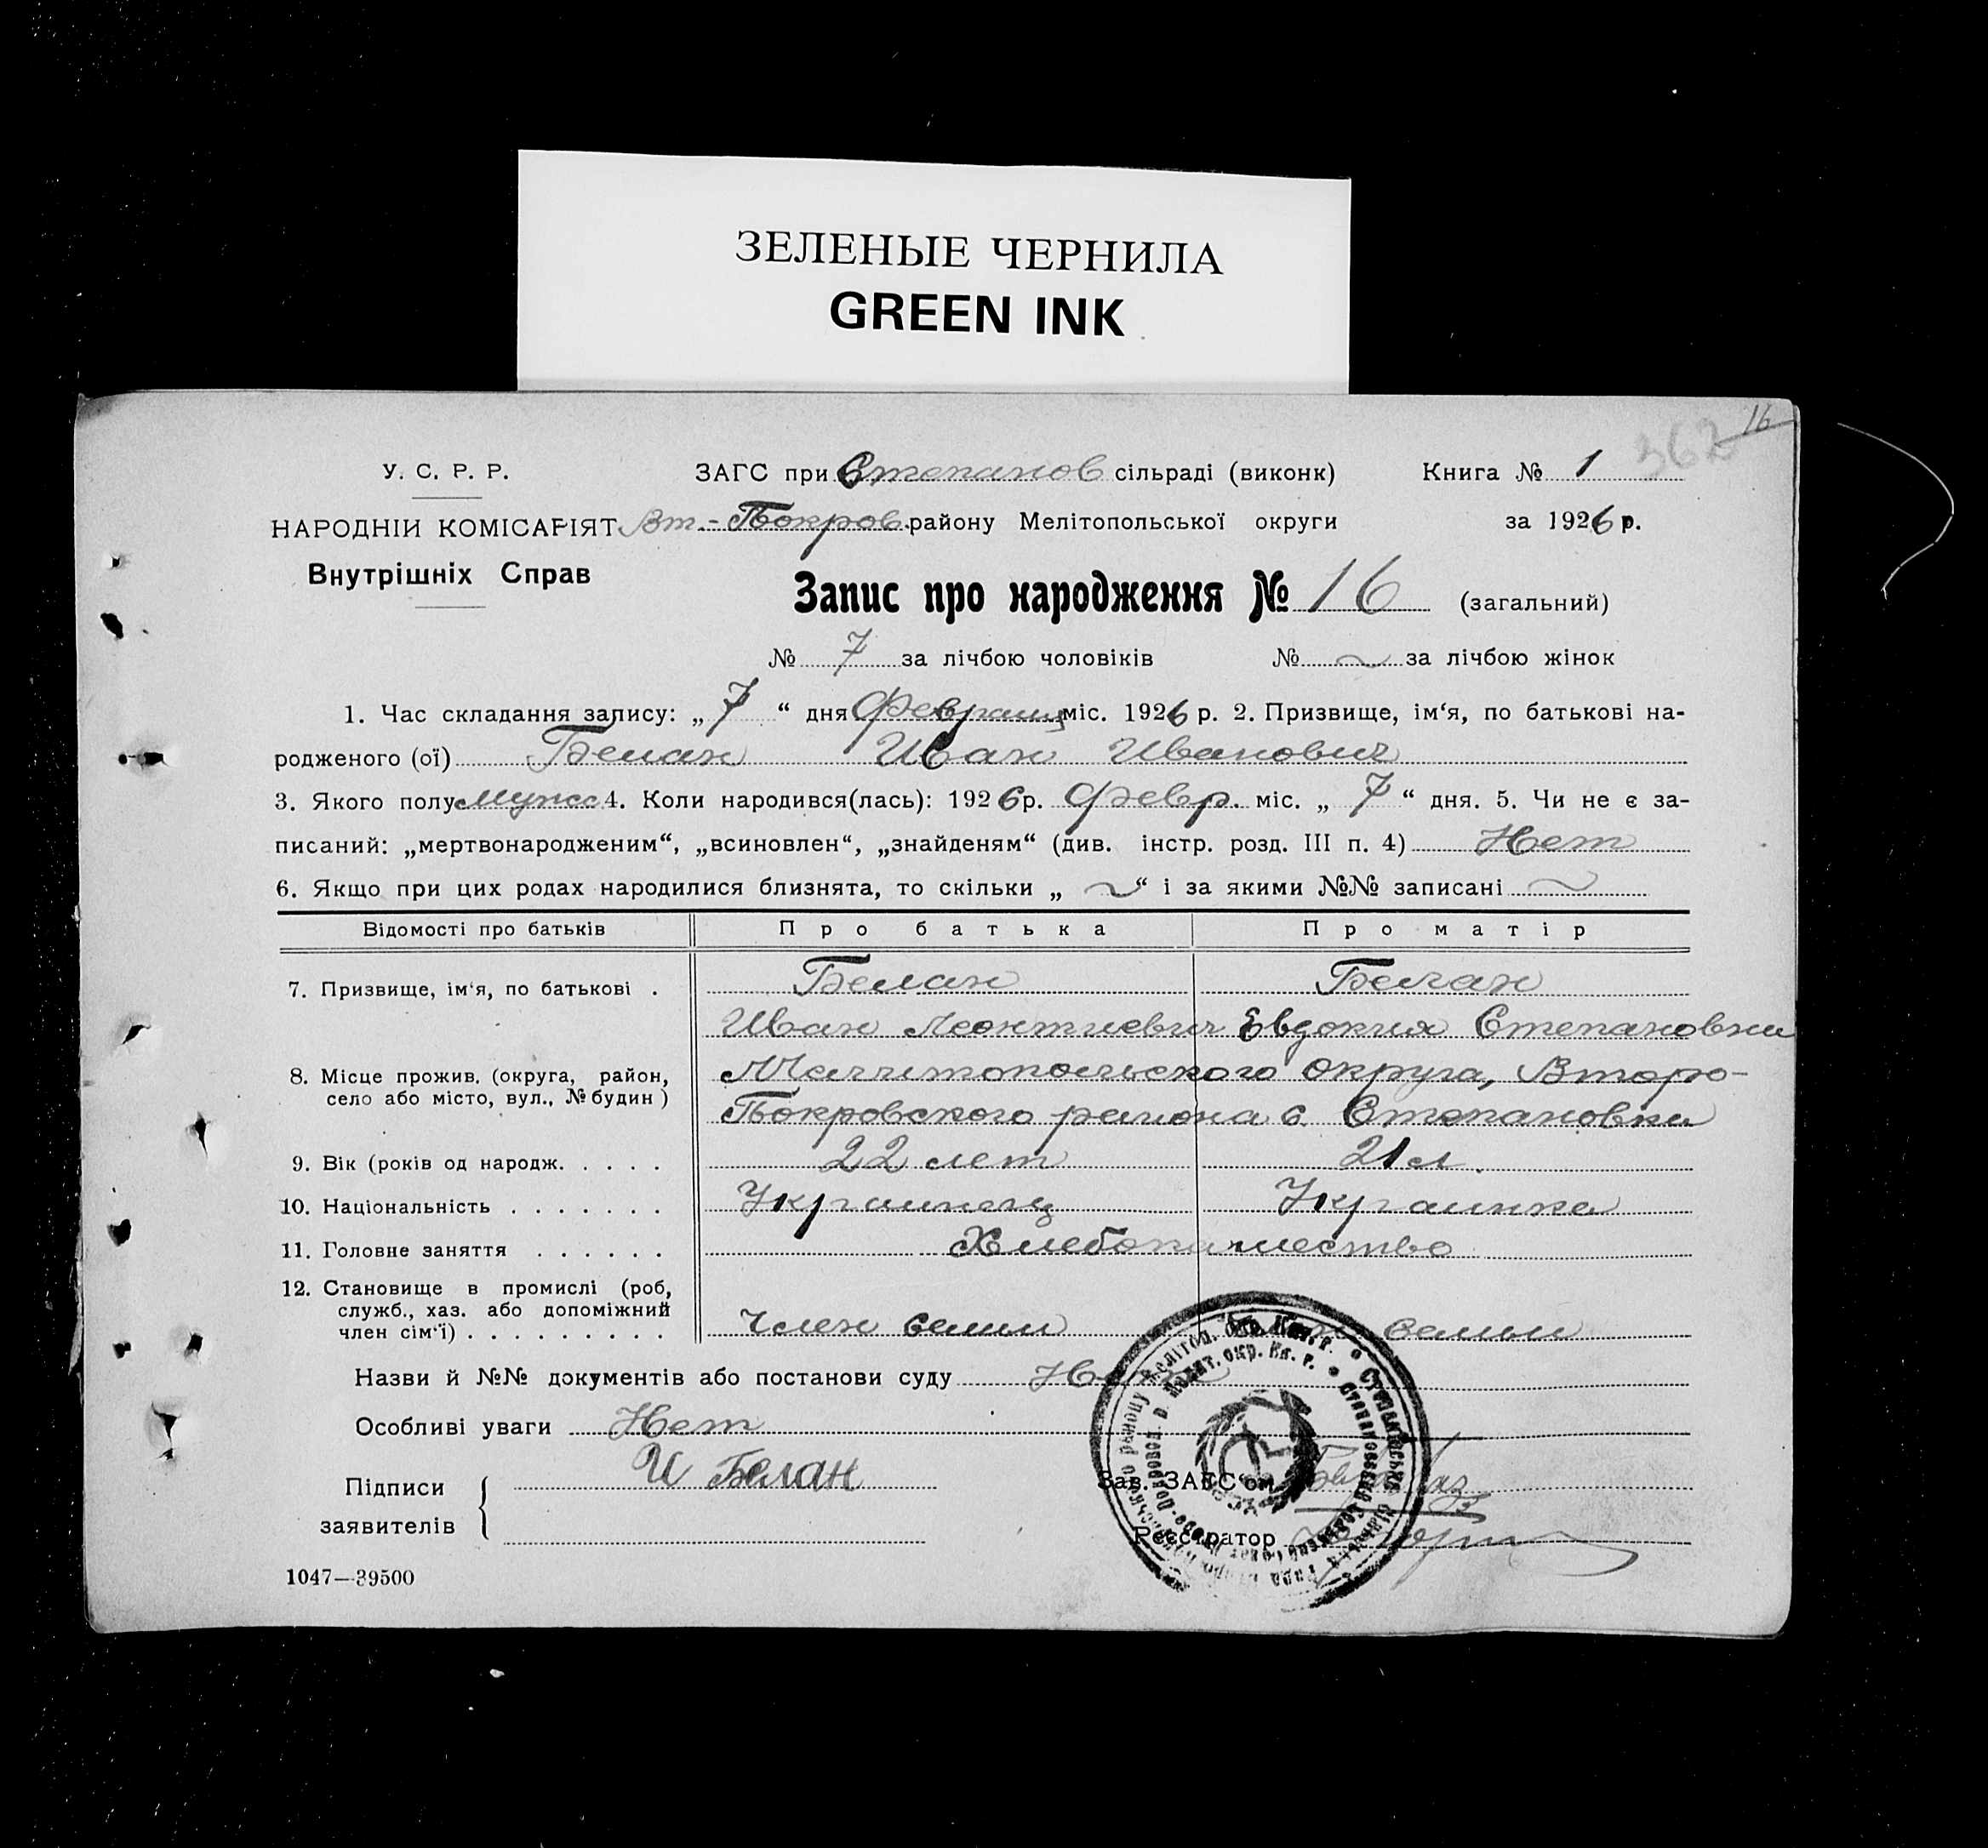 ЗЕЛЕНЫЕ ЧЕРНИЛА
GREEN INK
16
362
У. С. Р. Р.
ЗАГС при Степанов сільраді (виконк) Книга № 1
НАРОДНІЙ КОМІСАРІЯТ Вт.-Покров. району Мелітопольської округи за 1926 р.
Внутрішніх Справ
Запис про народження № 16 (загальний)
№ 7 за лічбою чоловіків № ~ за лічбою жінок
1. Час складання запису: „ 7 “ дня Февраля міс. 1926 р. 2. Призвище, ім‘я, по батькові на-
родженого (ої) Белан Иван Иванович
3. Якого полу Мужс 4. Коли народився(лась): 1926 р. Февр. міс. „ 7 “ дня. 5. Чи не є за-
писаний: „мертвонародженим“, „всиновлен“, „знайденям“ (див. інстр. розд. III п. 4) Нет
6. Якщо при цих родах народилися близнята, то скільки „ ~ “ і за якими №№ записані ~
Відомості про батьків Про батька Про матір
7. Призвище, ім‘я, по батькові . Белан Белан
Иван Леонтиевич Евдокия Степановна
8. Місце прожив. (округа, район, Мелитопольского округа, Второ-
село або місто, вул., № будин) Покровского района с. Степановки
9. Вік (років од народж. . . . . 22 лет 21 л.
10. Національність . . . . . . . Украинец Украинка
11. Головне заняття . . . . . . Хлебопашество
12. Становище в промислі (роб,
служб., хаз. або допоміжний
член сім‘ї) . . . . . . . . . Член семьи семьи
Назви й №№ документів або постанови суду Нет
Особливі уваги Нет
Підписи И Белан Зав. ЗАГС‘ом
заявителів Реєстратор
1047—39500